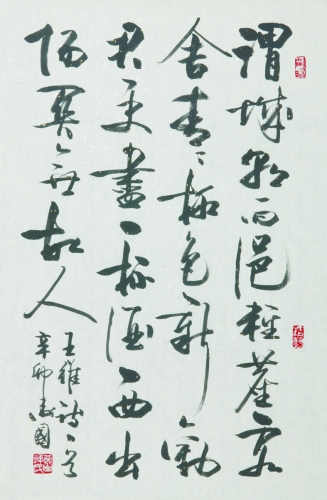 渭城朝雨浥輕塵客
舍青々柳色新勸
君更盡一杯酒西出
陽關無故人
王維詩一首
辛卯國